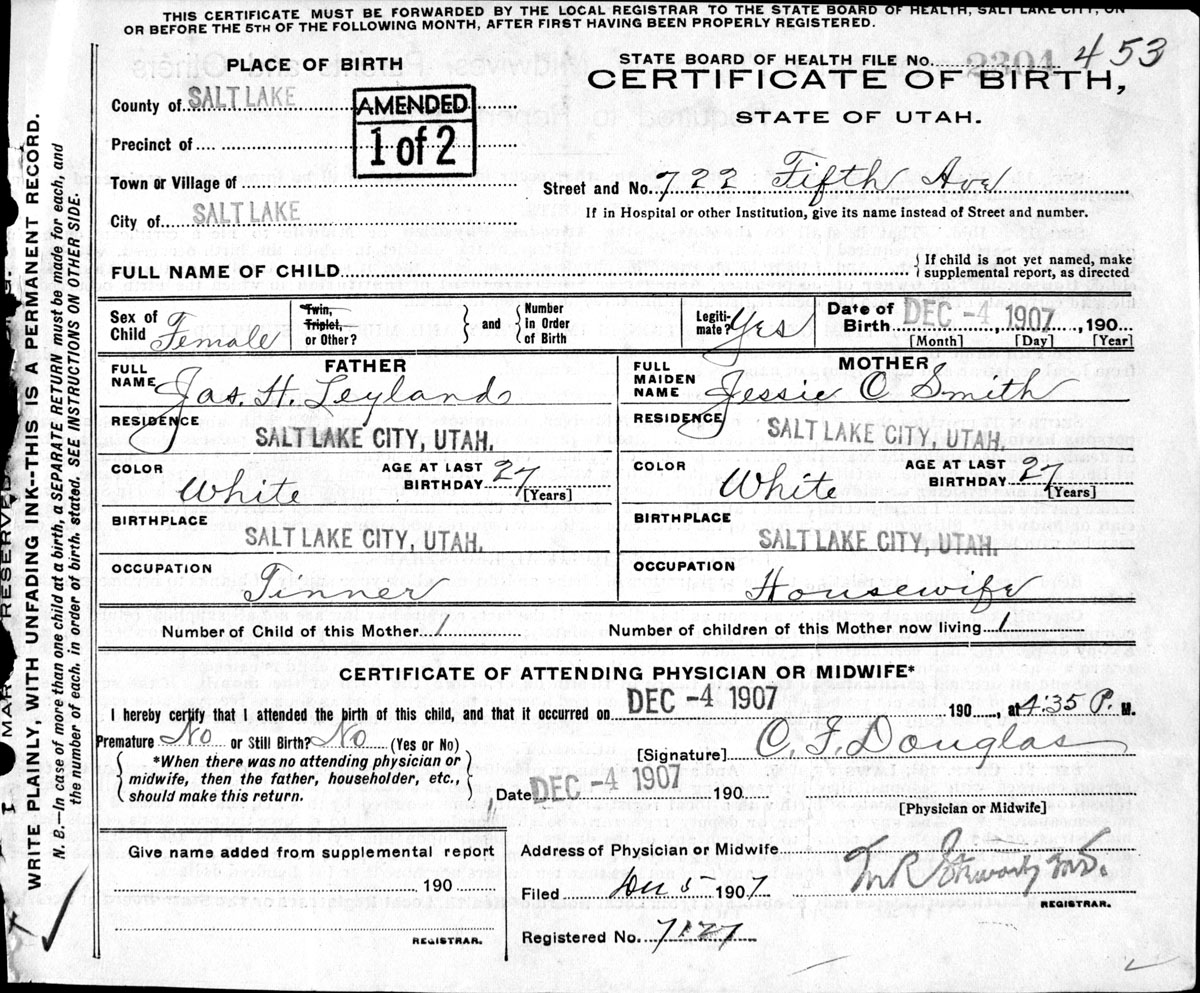 THIS CERTIFICATE MUST BE FORWARDED BY THE LOCAL REGISTRAR TO THE STATE BOARD OF HEALTH, SALT LAKE CITY, ON
OR BEFORE THE 5TH OF THE FOLLOWING MONTH, AFTER FIRST HAVING BEEN PROPERLY REGISTERED.
PLACE OF BIRTH
STATE BOARD OF HEALTH FILE No. 2304 453
CERTIFICATE OF BIRTH,
STATE OF UTAH.
County of SALT LAKE
AMENDED
1 of 2
Precinct of
Town or Village of
Street and No. 722 Fifth Ave
City of SALT LAKE
If in Hospital or other Institution, give its name instead of Street and number.
FULL NAME OF CHILD
{ If child is not yet named, make
supplemental report, as directed
Sex of Child Female
Twin, Triplet, or Other? } and { Number in Order of Birth
Legiti-mate? Yes
Date of Birth DEC -4 1907, 190
[Month] [Day] [Year]
FATHER
MOTHER
FULL NAME Jas. H. Leyland
FULL MAIDEN NAME Jessie C Smith
RESIDENCE SALT LAKE CITY, UTAH.
RESIDENCE SALT LAKE CITY, UTAH.
COLOR White AGE AT LAST BIRTHDAY 27 [Years]
COLOR White AGE AT LAST BIRTHDAY 27 [Years]
BIRTHPLACE SALT LAKE CITY, UTAH.
BIRTHPLACE SALT LAKE CITY, UTAH.
OCCUPATION Tinner
OCCUPATION Housewife
Number of Child of this Mother 1
Number of children of this Mother now living 1
CERTIFICATE OF ATTENDING PHYSICIAN OR MIDWIFE*
I hereby certify that I attended the birth of this child, and that it occurred on DEC -4 1907 190 , at 4:35 P. M.
Premature No or Still Birth? No (Yes or No)
[Signature] C. F. Douglas
{ *When there was no attending physician or
midwife, then the father, householder, etc.,
should make this return. }
Date DEC -4 1907 190
[Physician or Midwife]
Give name added from supplemental report
190
REGISTRAR.
Address of Physician or Midwife
Filed Dec 5 1907
REGISTRAR.
Registered No. 7127
WRITE PLAINLY, WITH UNFADING INK--THIS IS A PERMANENT RECORD.
N. B.—In case of more than one child at a birth, a SEPARATE RETURN must be made for each, and
the number of each, in order of birth, stated. SEE INSTRUCTIONS ON OTHER SIDE.